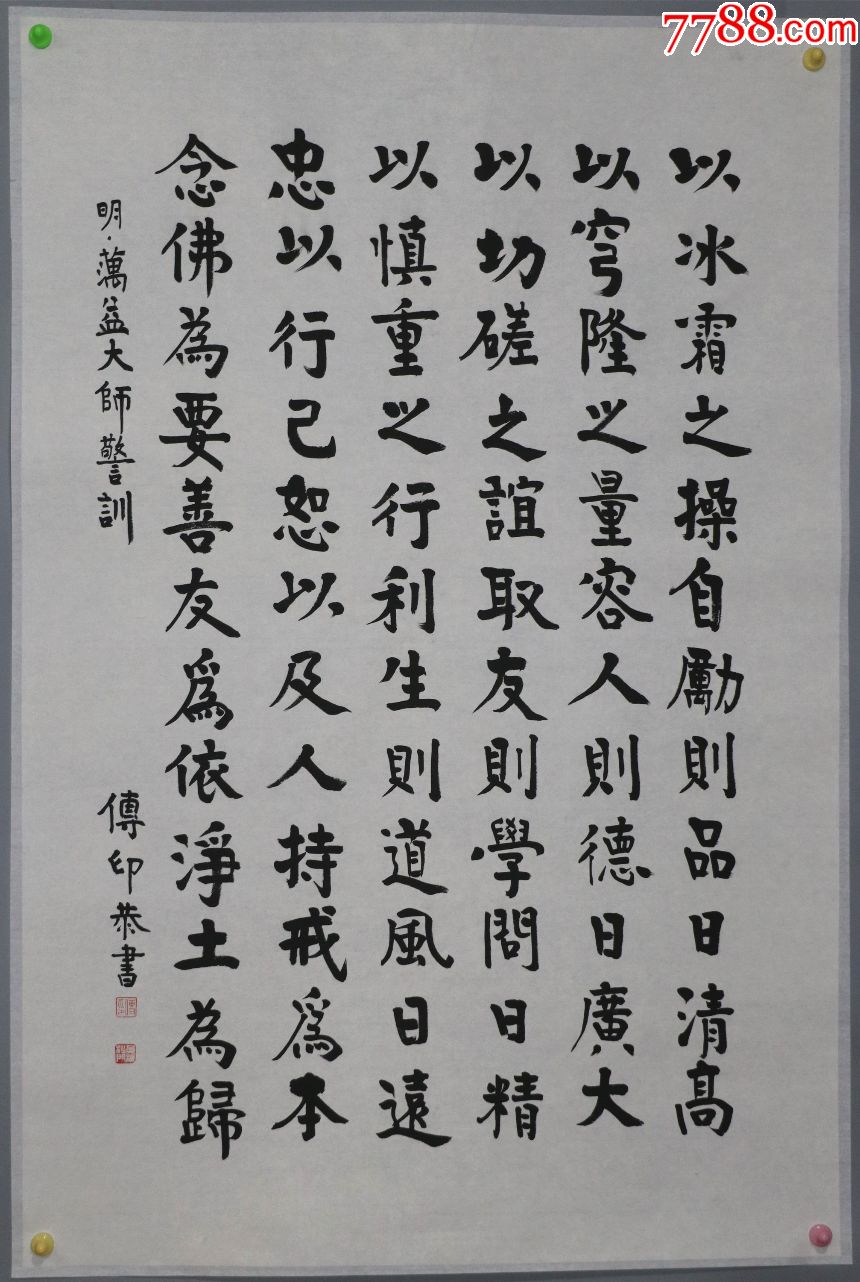 7788.com
以冰霜之操自勵則品日清高
以穹隆之量容人則德日廣大
以切磋之誼取友則學問日精
以慎重之行利生則道風日遠
忠以行己恕以及人持戒爲本
念佛為要善友爲依淨土為歸
明·藕益大師警訓
傳印恭書